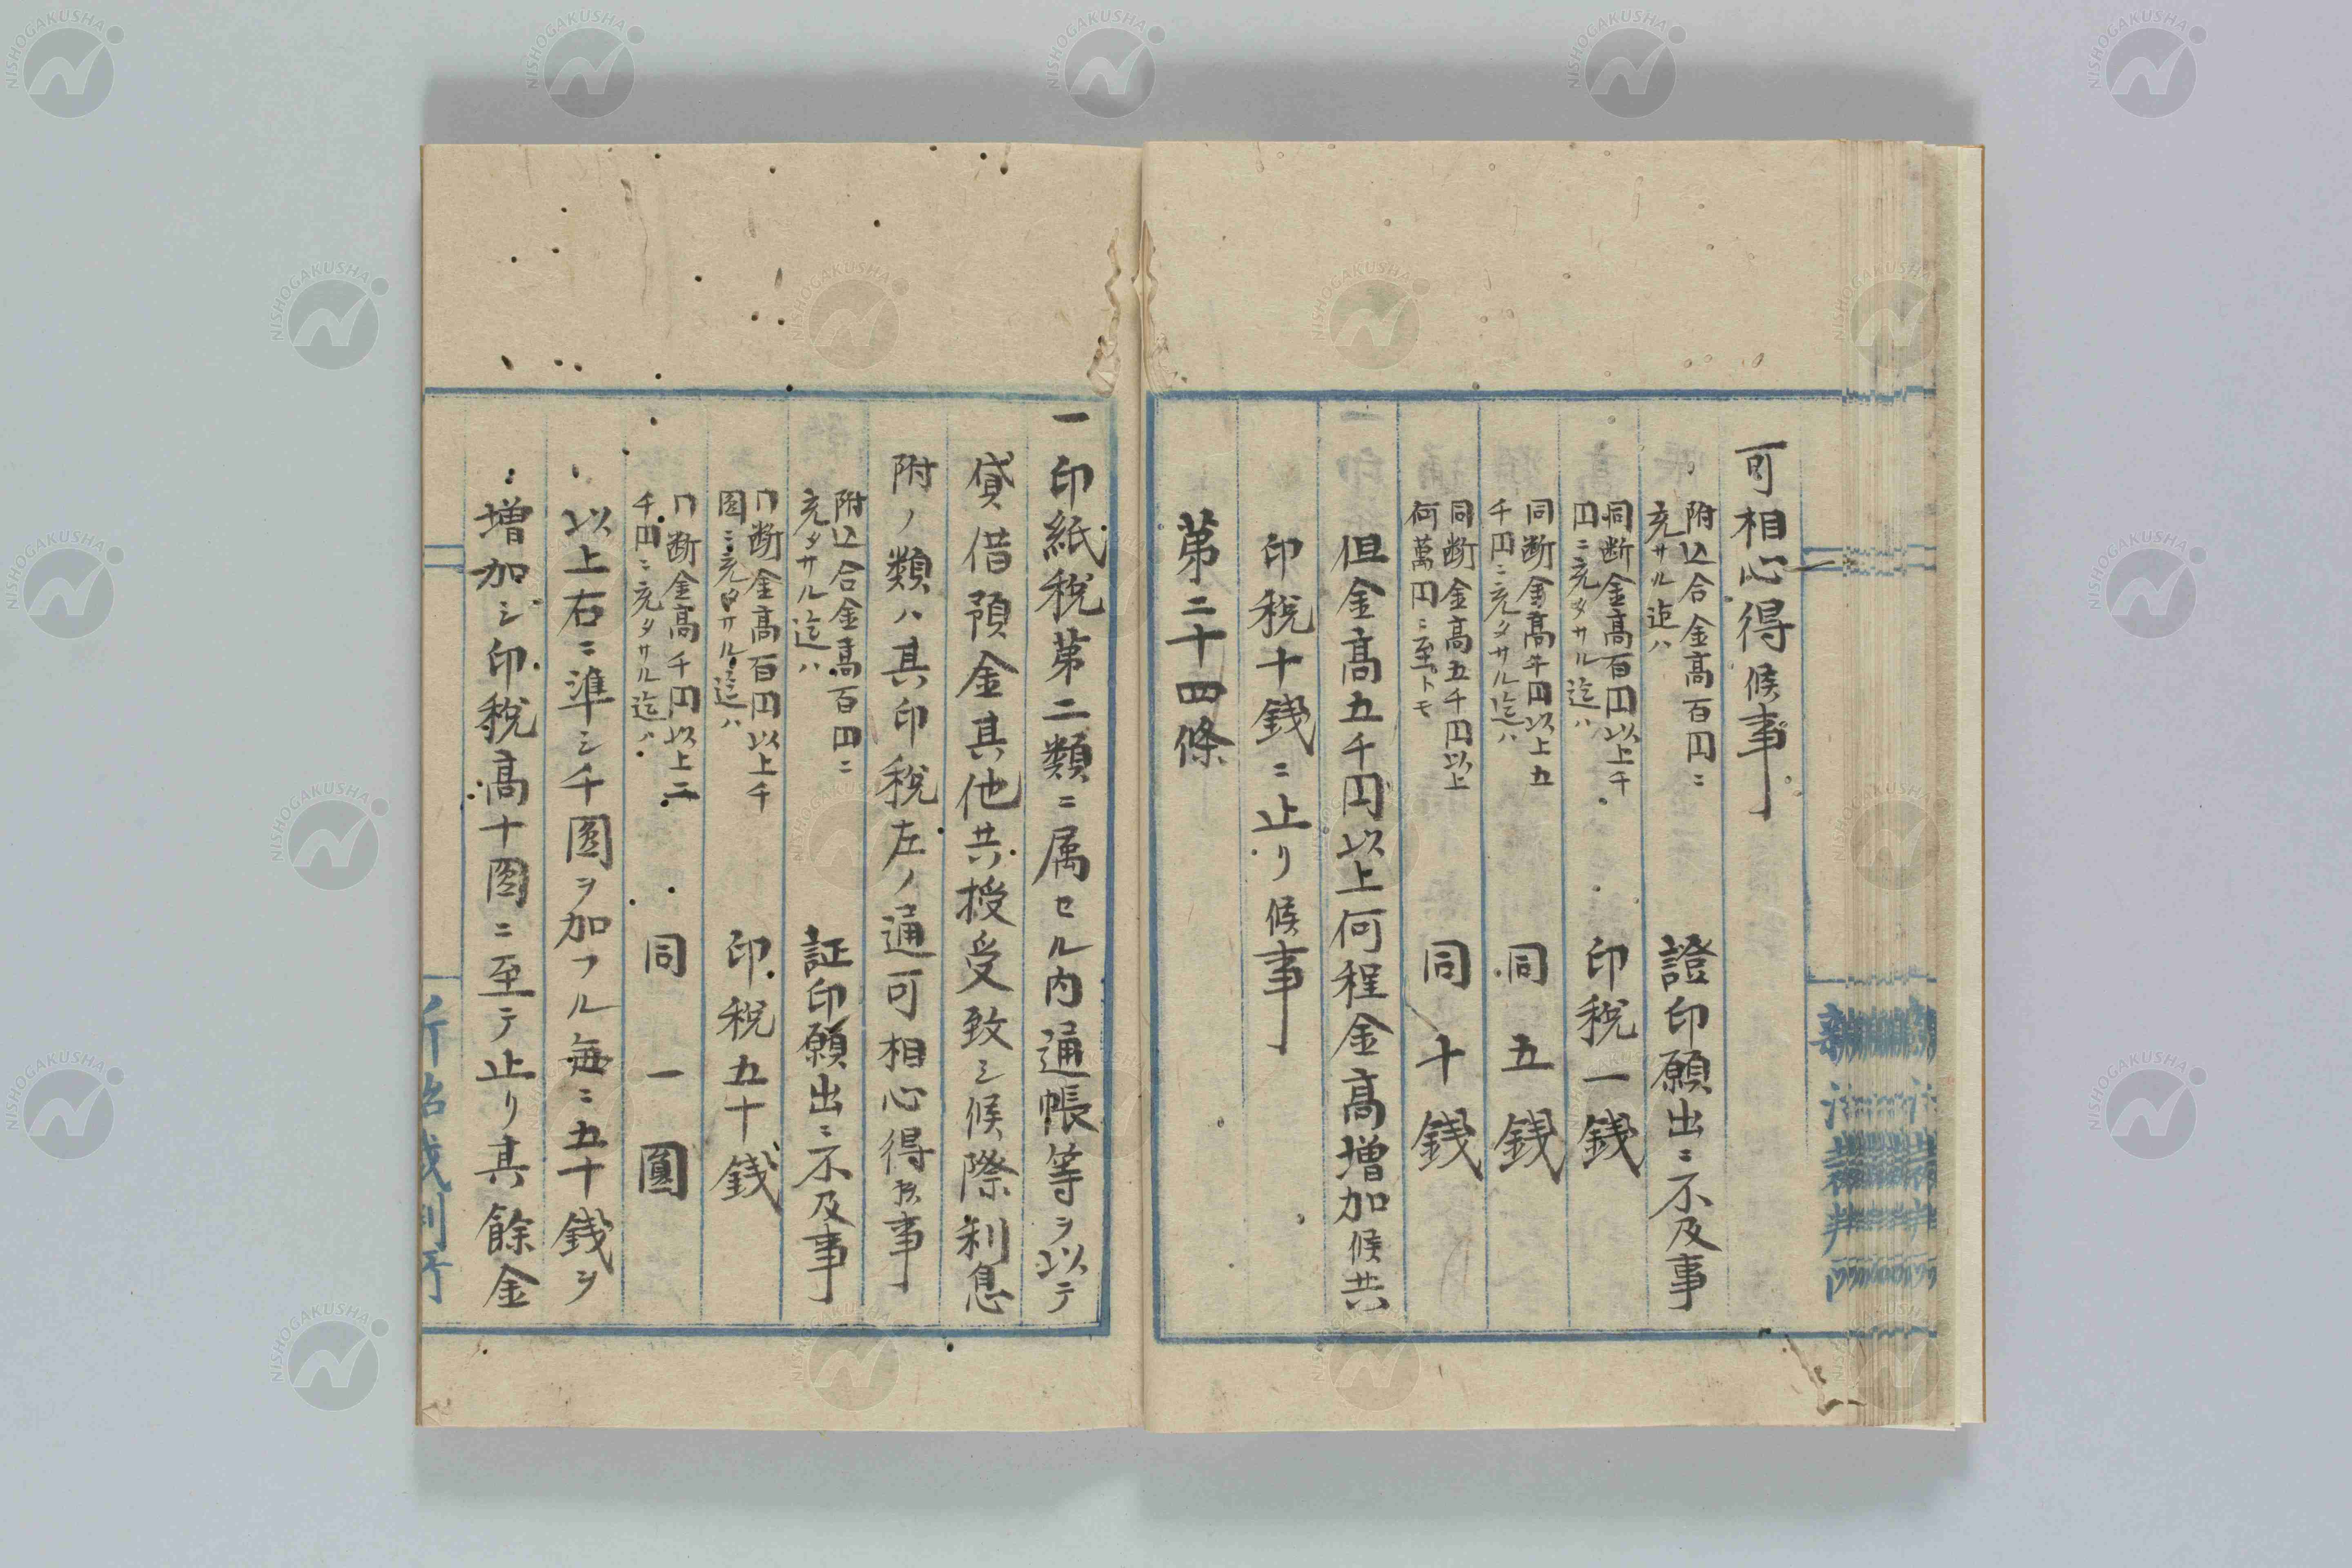 可相心得候事
附込合金高百円ニ
充サル迄ハ
證印願出ニ不及事
同断金高百円以上千
円ニ充タサル迄ハ
印税一銭
同断金高千円以上五
千円ニ充タサル迄ハ
同五銭
同断金高五千円以上
何萬円ニ至トモ
同十銭
但金高五千円以上何程金高増加候共
印税十銭ニ止リ候事
第二十四條
一印紙税第二類ニ属セル内通帳等ヲ以テ
貸借預金其他共授受致シ候際利息
附ノ類ハ其印税左ノ通可相心得候事
附込合金高百円ニ
充タサル迄ハ
証印願出ニ不及事
同断金高百円以上千
圓ニ充タサル迄ハ
印税五十銭
同断金高千円以上二
千円ニ充タサル迄ハ
同一圓
以上右ニ準シ千圓ヲ加フル毎ニ五十銭ヲ
増加シ印税高十圓ニ至テ止リ其餘金
NISHOGAKUSHA